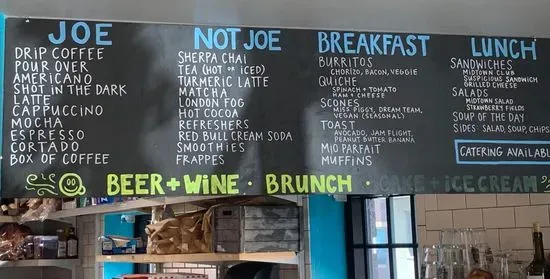 JOE
DRIP COFFEE
POUR OVER
AMERICANO
SHOT IN THE DARK
LATTE
CAPPUCCINO
MOCHA
ESPRESSO
CORTADO
BOX OF COFFEE
NOT JOE
SHERPA CHAI
TEA (HOT OR ICED)
TURMERIC LATTE
MATCHA
LONDON FOG
HOT COCOA
REFRESHERS
RED BULL CREAM SODA
SMOOTHIES
FRAPPES
BREAKFAST
BURRITOS
CHORIZO, BACON, VEGGIE
QUICHE
SPINACH + TOMATO
HAM + CHEESE
SCONES
MISS PIGGY, DREAM TEAM,
VEGAN (SEASONAL)
TOAST
AVOCADO, JAM FLIGHT,
PEANUT BUTTER BANANA
MJO PARFAIT
MUFFINS
LUNCH
SANDWICHES
MIDTOWN CLUB
SUSPICIOUS SANDWICH
GRILLED CHEESE
SALADS
MIDTOWN SALAD
STRAWBERRY FIELDS
SOUP OF THE DAY
SIDES: SALAD, SOUP, CHIPS
CATERING AVAILABL
BEER + WINE · BRUNCH · CAKE + ICE CREAM